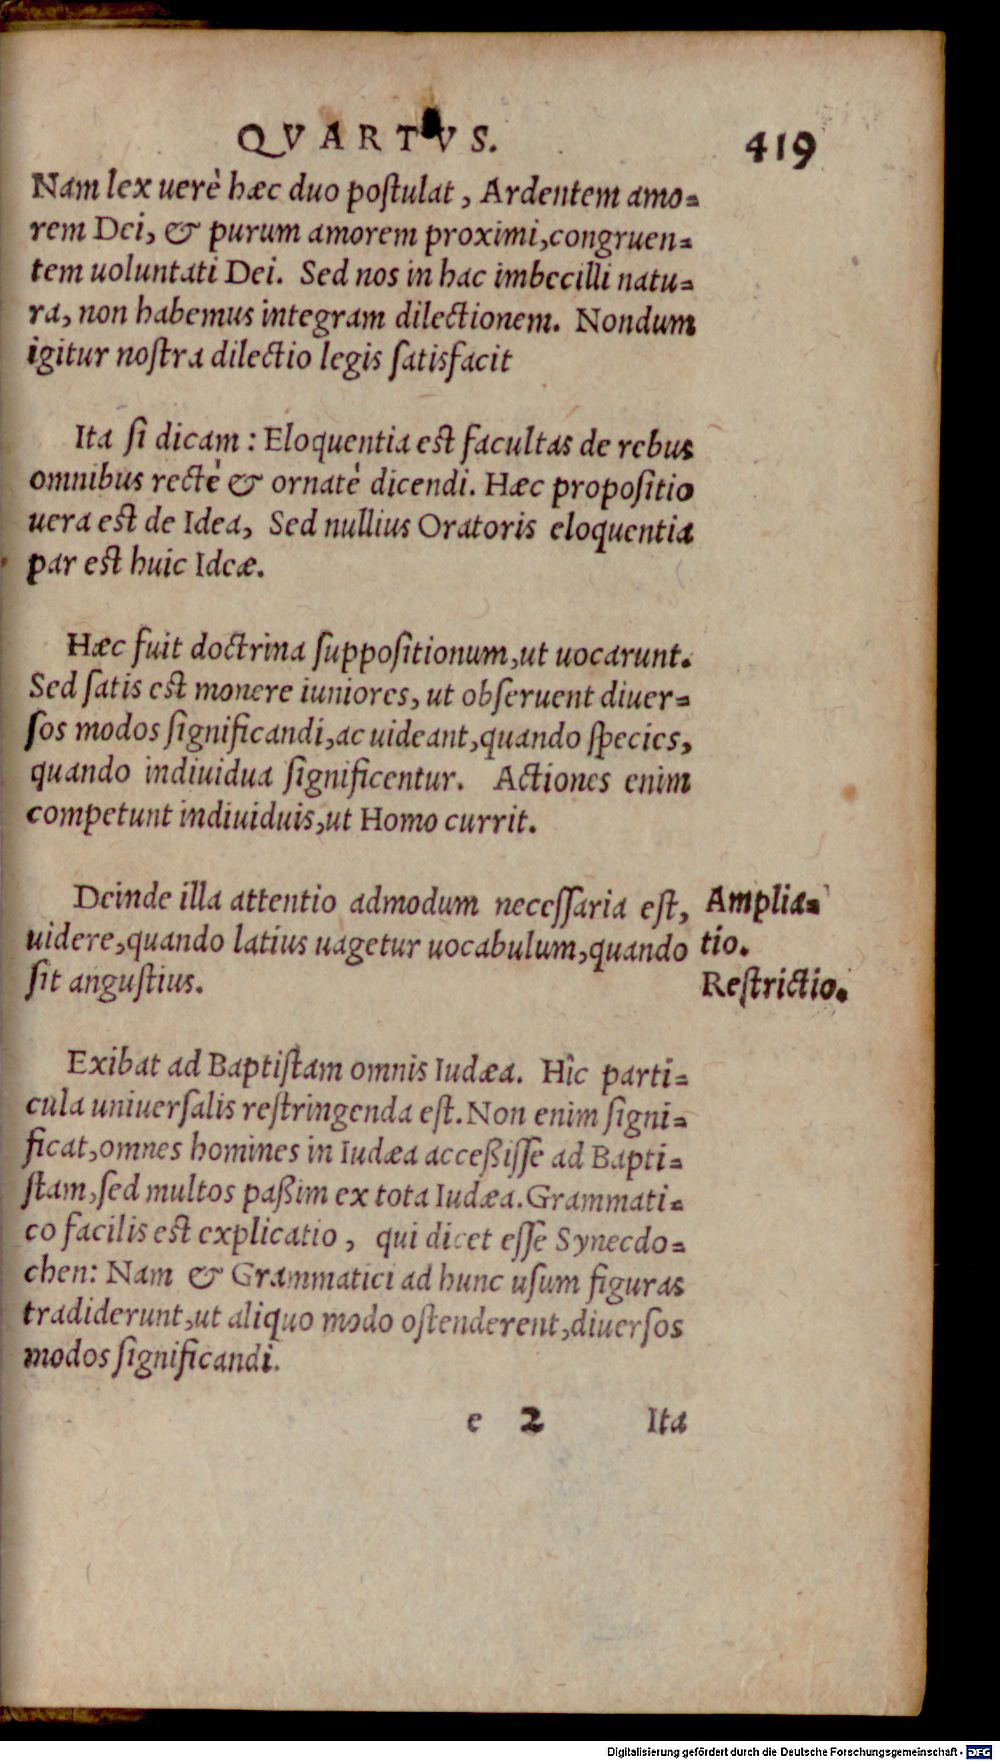 QVARTVS. 419
Nam lex uerè hæc duo poſtulat, Ardentem amo=
rem Dei, & purum amorem proximi, congruen=
tem uoluntati Dei. Sed nos in hac imbecilli natu=
ra, non habemus integram dilectionem. Nondum
igitur noſtra dilectio legis ſatisfacit
Ita ſi dicam: Eloquentia eſt facultas de rebus
omnibus rectè & ornatè dicendi. Hæc propoſitio
uera eſt de Idea, Sed nullius Oratoris eloquentia
par eſt huic Ideæ.
Hæc fuit doctrina ſuppoſitionum, ut uocarunt.
Sed ſatis eſt monere iuniores, ut obſeruent diuer=
ſos modos ſignificandi, ac uideant, quando ſpecies,
quando indiuidua ſignificentur. Actiones enim
competunt indiuiduis, ut Homo currit.
Deinde illa attentio admodum neceſſaria eſt,
uidere, quando latius uagetur uocabulum, quando
ſit anguſtius.
Amplia=
tio.
Reſtrictio.
Exibat ad Baptiſtam omnis Iudæa. Hîc parti=
cula uniuerſalis reſtringenda eſt. Non enim ſigni=
ficat, omnes homines in Iudæa acceßiſſe ad Bapti=
ſtam, ſed multos paßim ex tota Iudæa. Grammati=
co facilis eſt explicatio, qui dicet eſſe Synecdo=
chen: Nam & Grammatici ad hunc uſum figuras
tradiderunt, ut aliquo modo oſtenderent, diuerſos
modos ſignificandi.
e 2 Ita
Digitalisierung gefördert durch die Deutsche Forschungsgemeinschaft - DFG